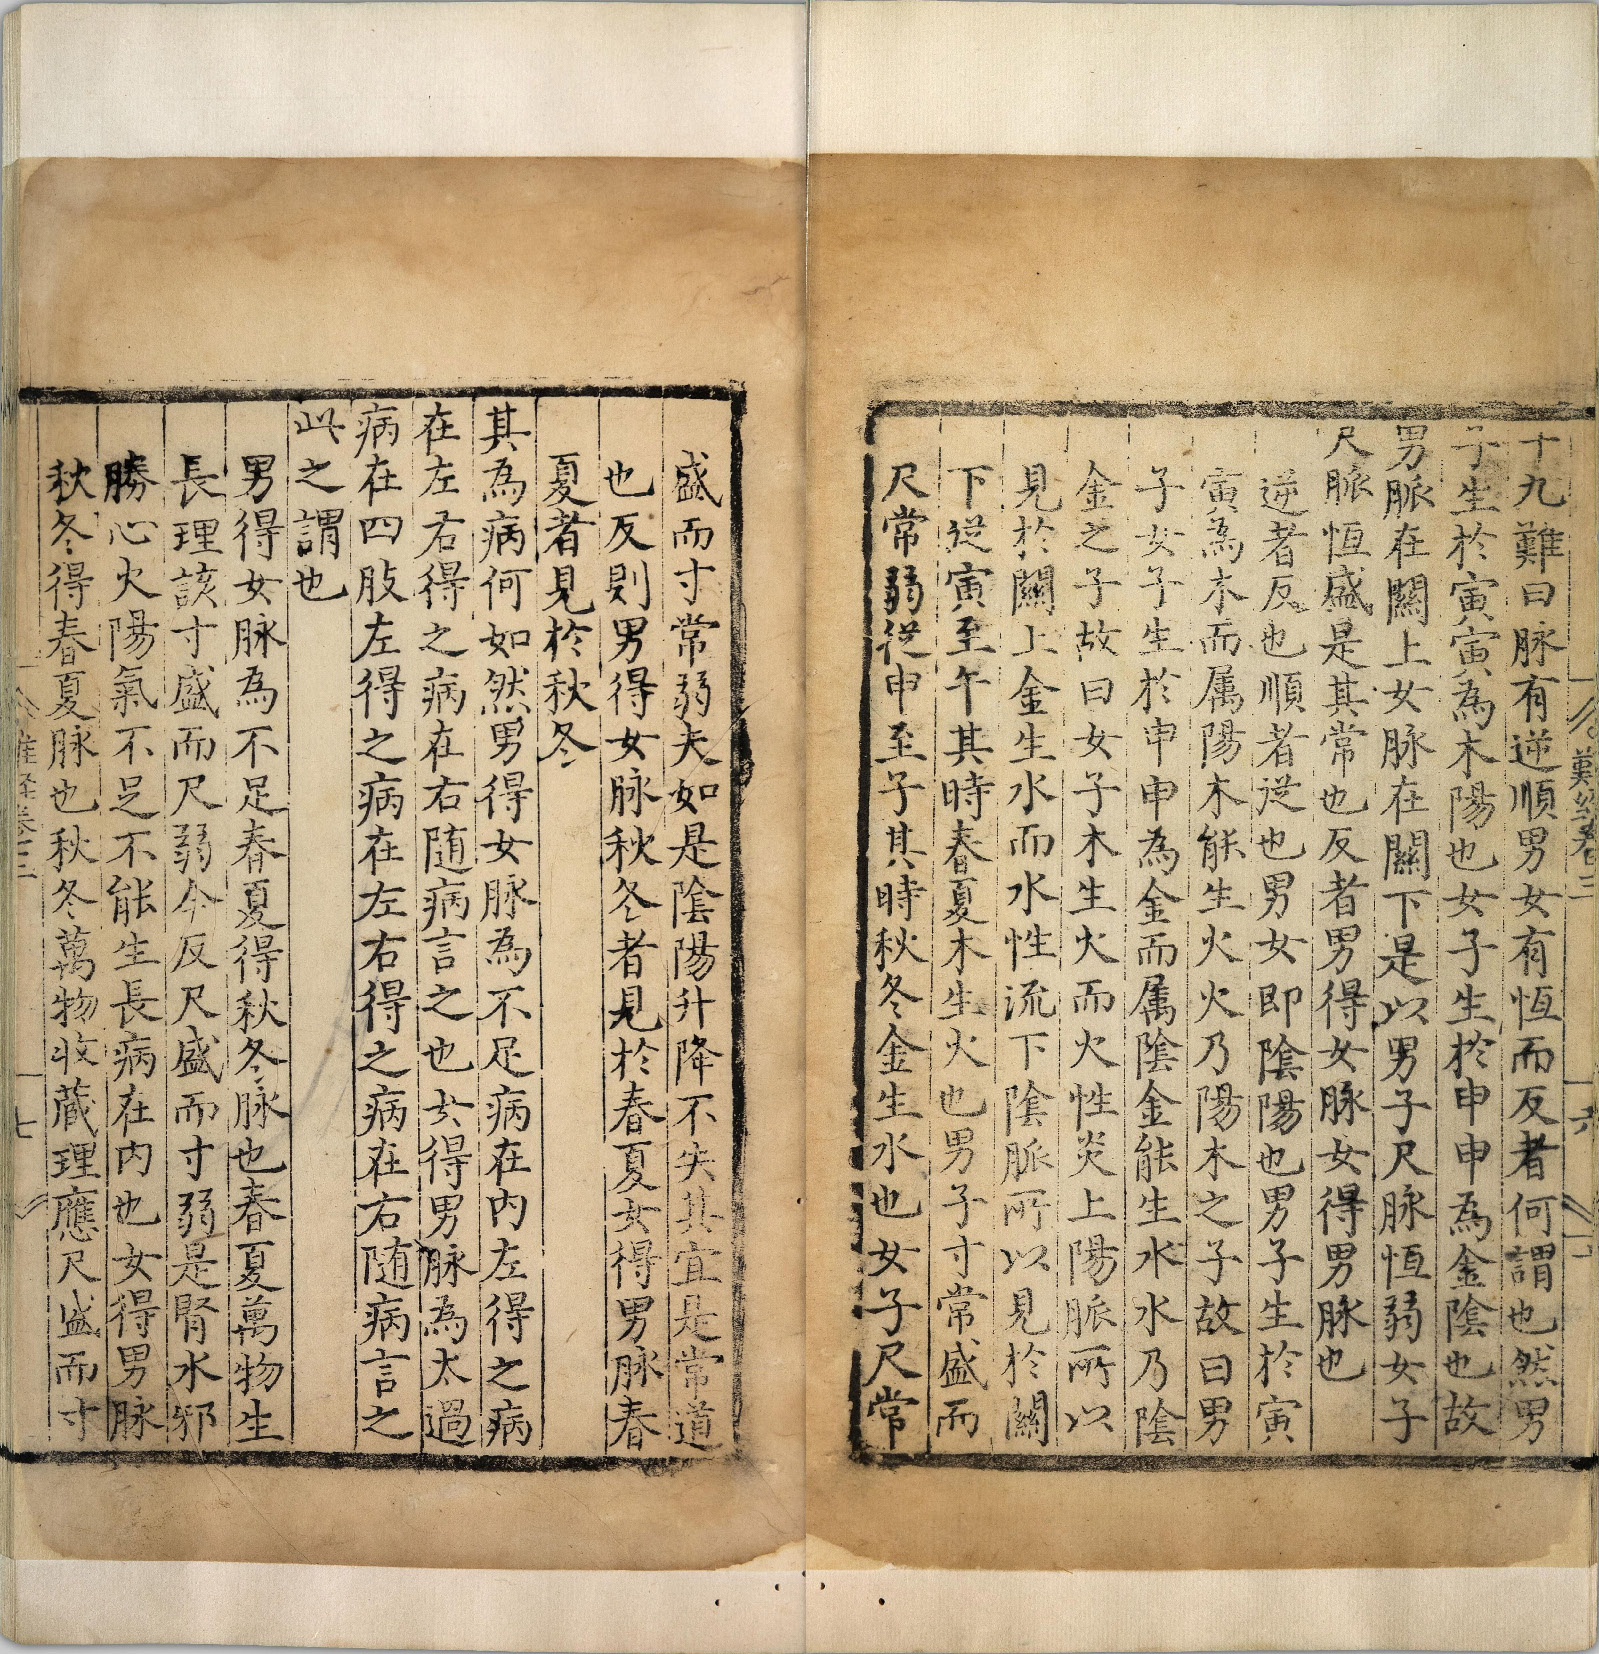 十九難曰脉有逆順男女有恆而反者何謂也然男
子生於寅寅為木陽也女子生於申申為金陰也故
男脈在關上女脈在關下是以男子尺脈恆弱女子
尺脈恆盛是其常也反者男得女脉女得男脉也
逆者反也順者從也男女即陰陽也男子生於寅
寅為木而属陽木能生火火乃陽木之子故曰男
子女子生於申申為金而属陰金能生水水乃陰
金之子故曰女子木生火而火性炎上陽脈所以
見於關上金生水而水性流下陰脈所以見於關
下從寅至午其時春夏木生火也男子寸常盛而
尺常弱從申至子其時秋冬金生水也女子尺常
難經卷三
六
盛而寸常弱夫如是陰陽升降不失其宜是常道
也反則男得女脉秋冬者見於春夏女得男脉春
夏者見於秋冬
其為病何如然男得女脉為不足病在內左得之病
在左右得之病在右随病言之也女得男脉為太過
病在四肢左得之病在左右得之病在右随病言之
此之謂也
男得女脉為不足春夏得秋冬脉也春夏萬物生
長理該寸盛而尺弱今反尺盛而寸弱是腎水邪
勝心火陽氣不足不能生長病在内也女得男脉
秋冬得春夏脉也秋冬萬物收藏理應尺盛而寸
七